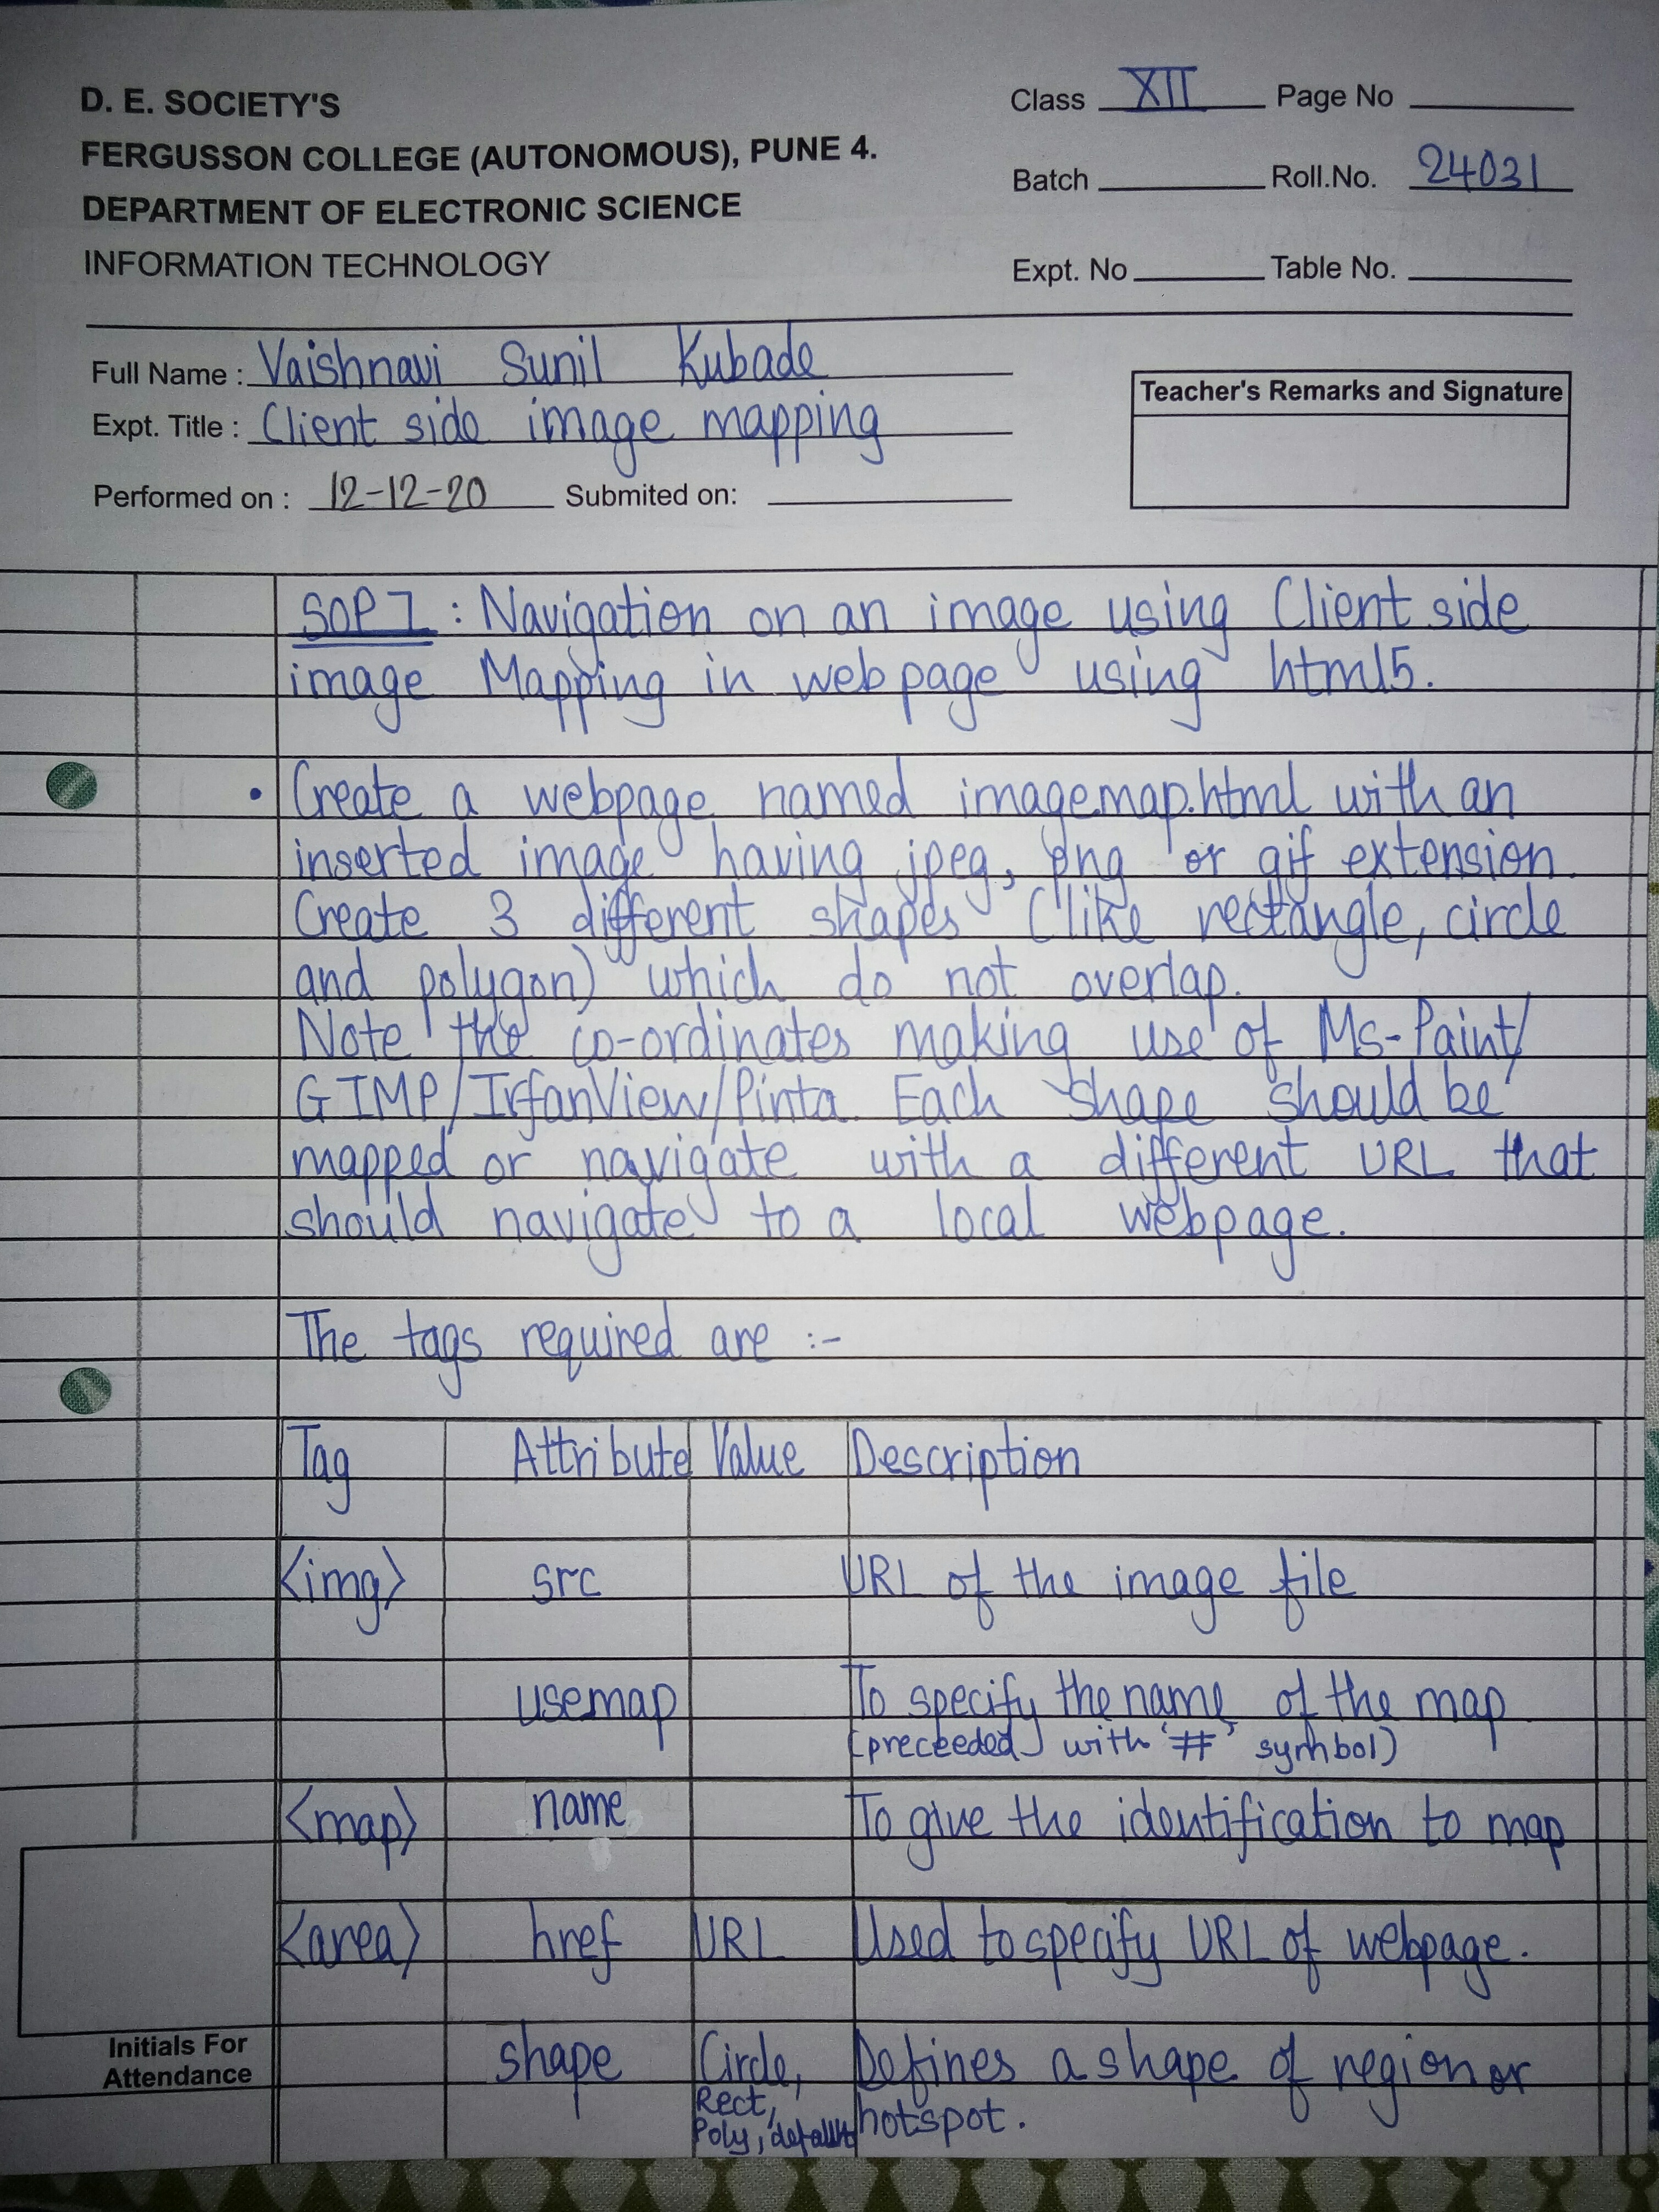 D. E. SOCIETY'S
FERGUSSON COLLEGE (AUTONOMOUS), PUNE 4.
DEPARTMENT OF ELECTRONIC SCIENCE
INFORMATION TECHNOLOGY
Class XII Page No
Batch Roll.No. 24031
Expt. No Table No.
Full Name : Vaishnavi Sunil Kubade
Expt. Title : Client side image mapping
Performed on : 12-12-20 Submited on:
Teacher's Remarks and Signature
SOP 7 : Navigation on an image using Client side
image Mapping in web page using html5.
• Create a webpage named imagemap.html with an
inserted image having jpeg, png or gif extension.
Create 3 different shapes (like rectangle, circle
and polygon) which do not overlap.
Note the co-ordinates making use of Ms-Paint/
GIMP/IrfanView/Pinta. Each shape should be
mapped or navigate with a different URL that
should navigate to a local webpage.
The tags required are :-
Tag Attribute Value Description
<img> src URL of the image file
usemap To specify the name of the map
(preceeded with '#' symbol)
<map> name To give the identification to map
<area> href URL Used to specify URL of webpage.
shape Circle, Defines a shape of region or
Rect, hotspot.
Poly, default
Initials For
Attendance